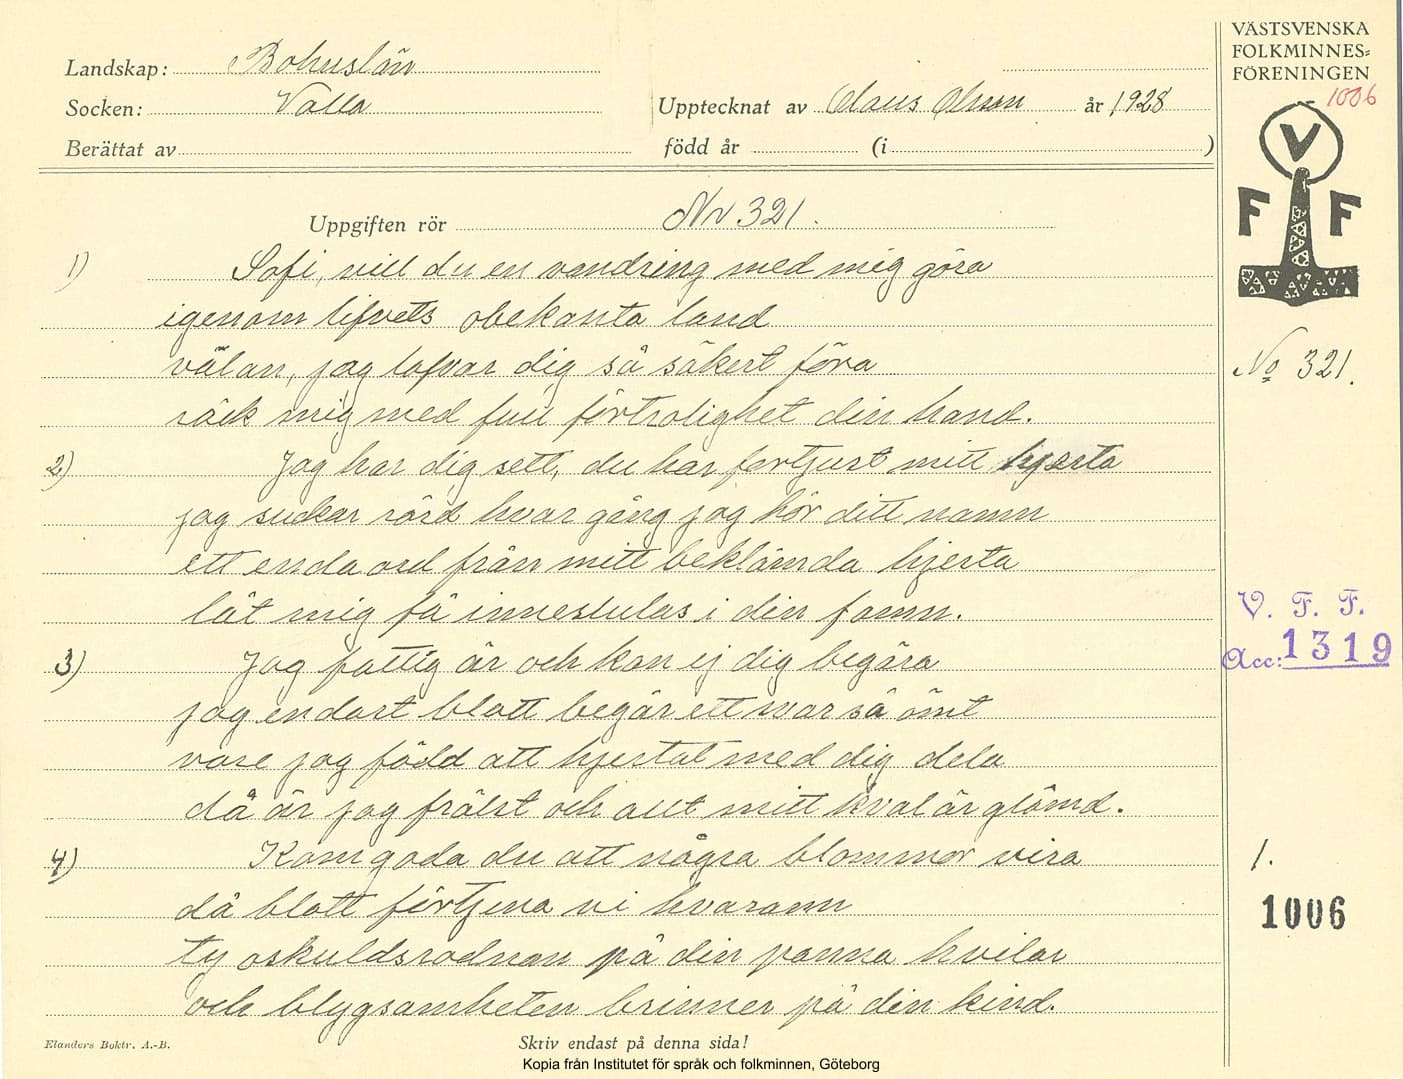 VÄSTSVENSKA
FOLKMINNES=
FÖRENINGEN
1006
Landskap: Bohuslän
Socken: Valla
Upptecknat av Claus Olsson år 1928
Berättat av
född år (i )
V
F F
Uppgiften rör Nr 321.
1) Sofi, vill du en vandring med mig göra
igenom lifvets obekanta land
No 321.
välan, jag lofvar dig så säkert föra
räck mig med full förtrolighet din hand.
2) Jag har dig sett, du har fortjust mitt hjerta
jag suckar rörd hvar gång jag hör ditt namn
ett enda ord från mitt beklämda hjerta
låt mig få inneslutas i din famn.
V. F. F.
Acc: 1319
3) Jag fattig är och kan ej dig begära
jag endast blott begär ett svar så ömt
vore jag född att hjertat med dig dela
då är jag frälst och allt mitt kval är glömd.
4) Kom goda du att några blommor visa
1.
då blott förtjena vi hvarann
1006
ty oskuldsrodnan på din panna hvilar
och blygsamheten brinner på din kind.
Elanders Boktr. A.-B.
Skriv endast på denna sida!
Kopia från Institutet för språk och folkminnen, Göteborg